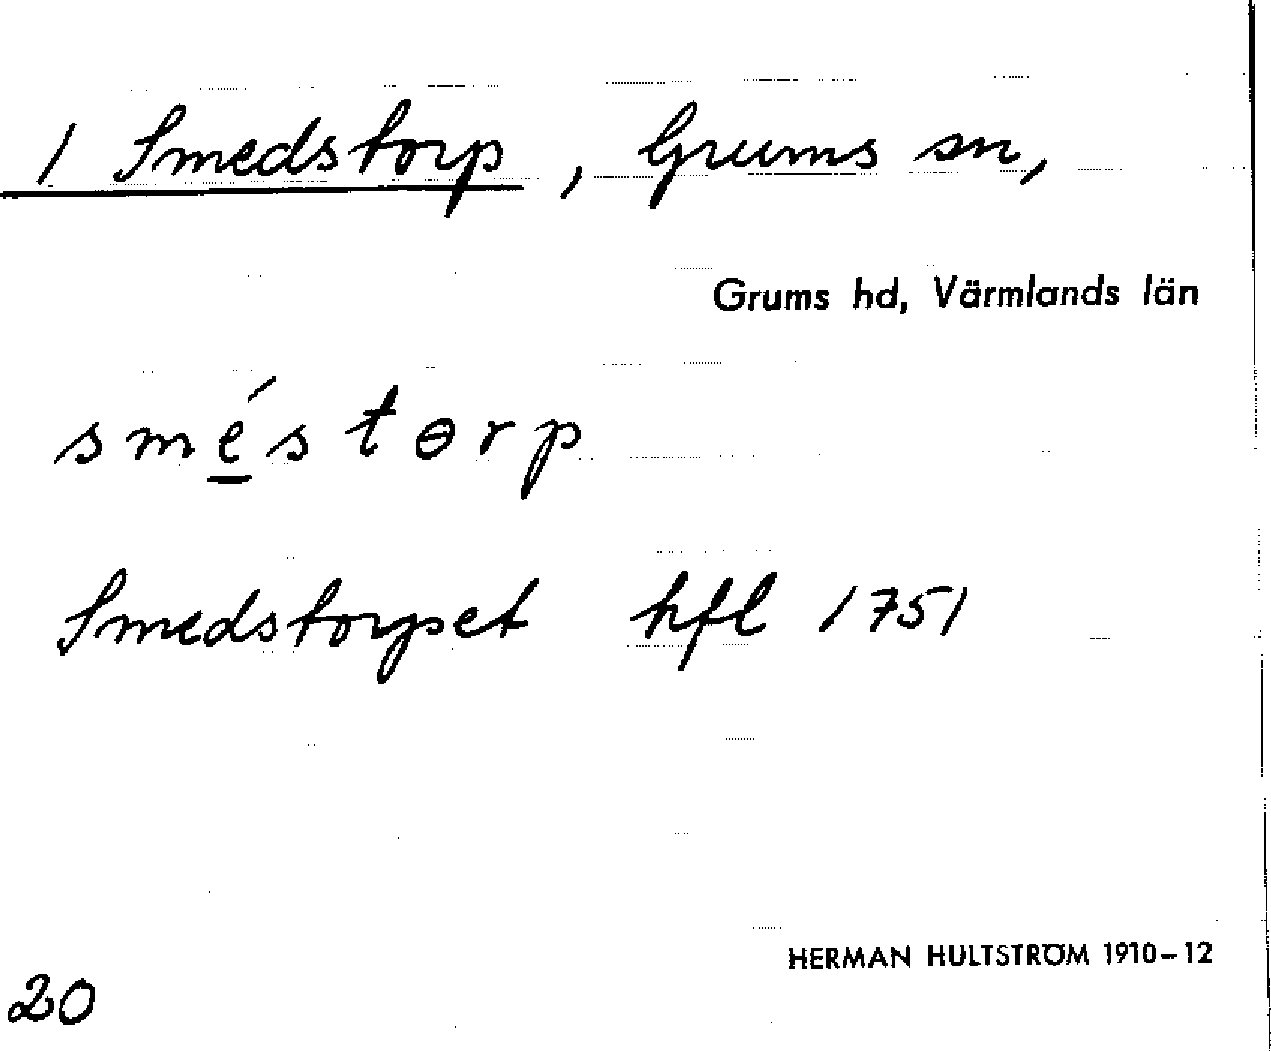 1 Smedstorp, Grums sn,
Grums hd, Värmlands län
smé̲stɵrp
Smedstorpet hfl 1751
HERMAN HULTSTRÖM 1910–12
20